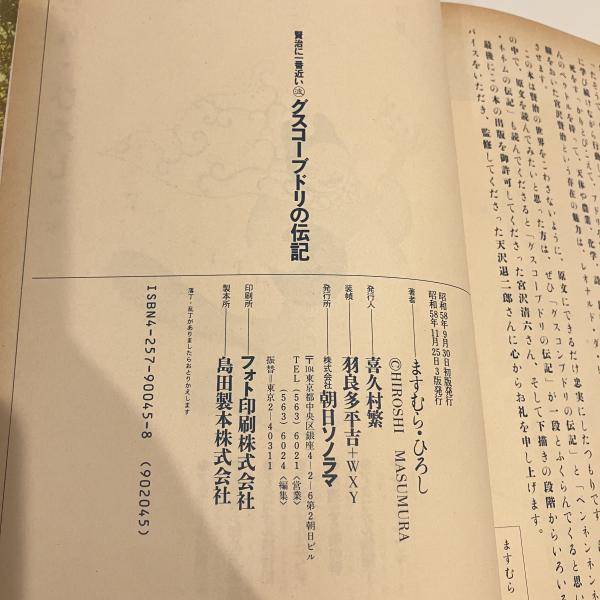 に学び続けながら行動
死をしっかりとひこえて、ブドリ
んのベクトルを持って、天体や農業、化学、詩
魅力は、レオナルド・ダ・
膓をおいた宮沢賢治という存在の
させます。
この本は賢治の世界をこわさないように、原文にできるだけ忠実にしたつもりです。
の中で、原文を読んでみたいと思った方は、ぜひ「グスコーブドリの伝記」と「ペンネンネンネン
・ネネムの伝記」も読んでくださると「グスコーブドリの伝記」が一段とふくらんでくると思い
最後にこの本の出版を御許可してくださった宮沢清六さん、そして下描きの段階からいろいろ
バイスをいただき、監修してくださった天沢退二郎さんに心からお礼を申し上げます。
ますむら
賢治に一番近い
グスコーブドリの伝記
昭和58年9月30日初版発行
昭和58年11月25日3版発行
著者──ますむら・ひろし
©HIROSHI MASUMURA
発行人──喜久村繁
装幀──羽良多平吉+WXY
発行所──株式会社朝日ソノラマ
〒104東京都中央区銀座4-2-6第2朝日ビル
TEL(563)6021〈営業〉
(563)6024〈編集〉
振替=東京2-40311
印刷所──フォト印刷株式会社
製本所──島田製本株式会社
落丁・乱丁がありましたらおとりかえします
ISBN4-257-90045-8 (902045)